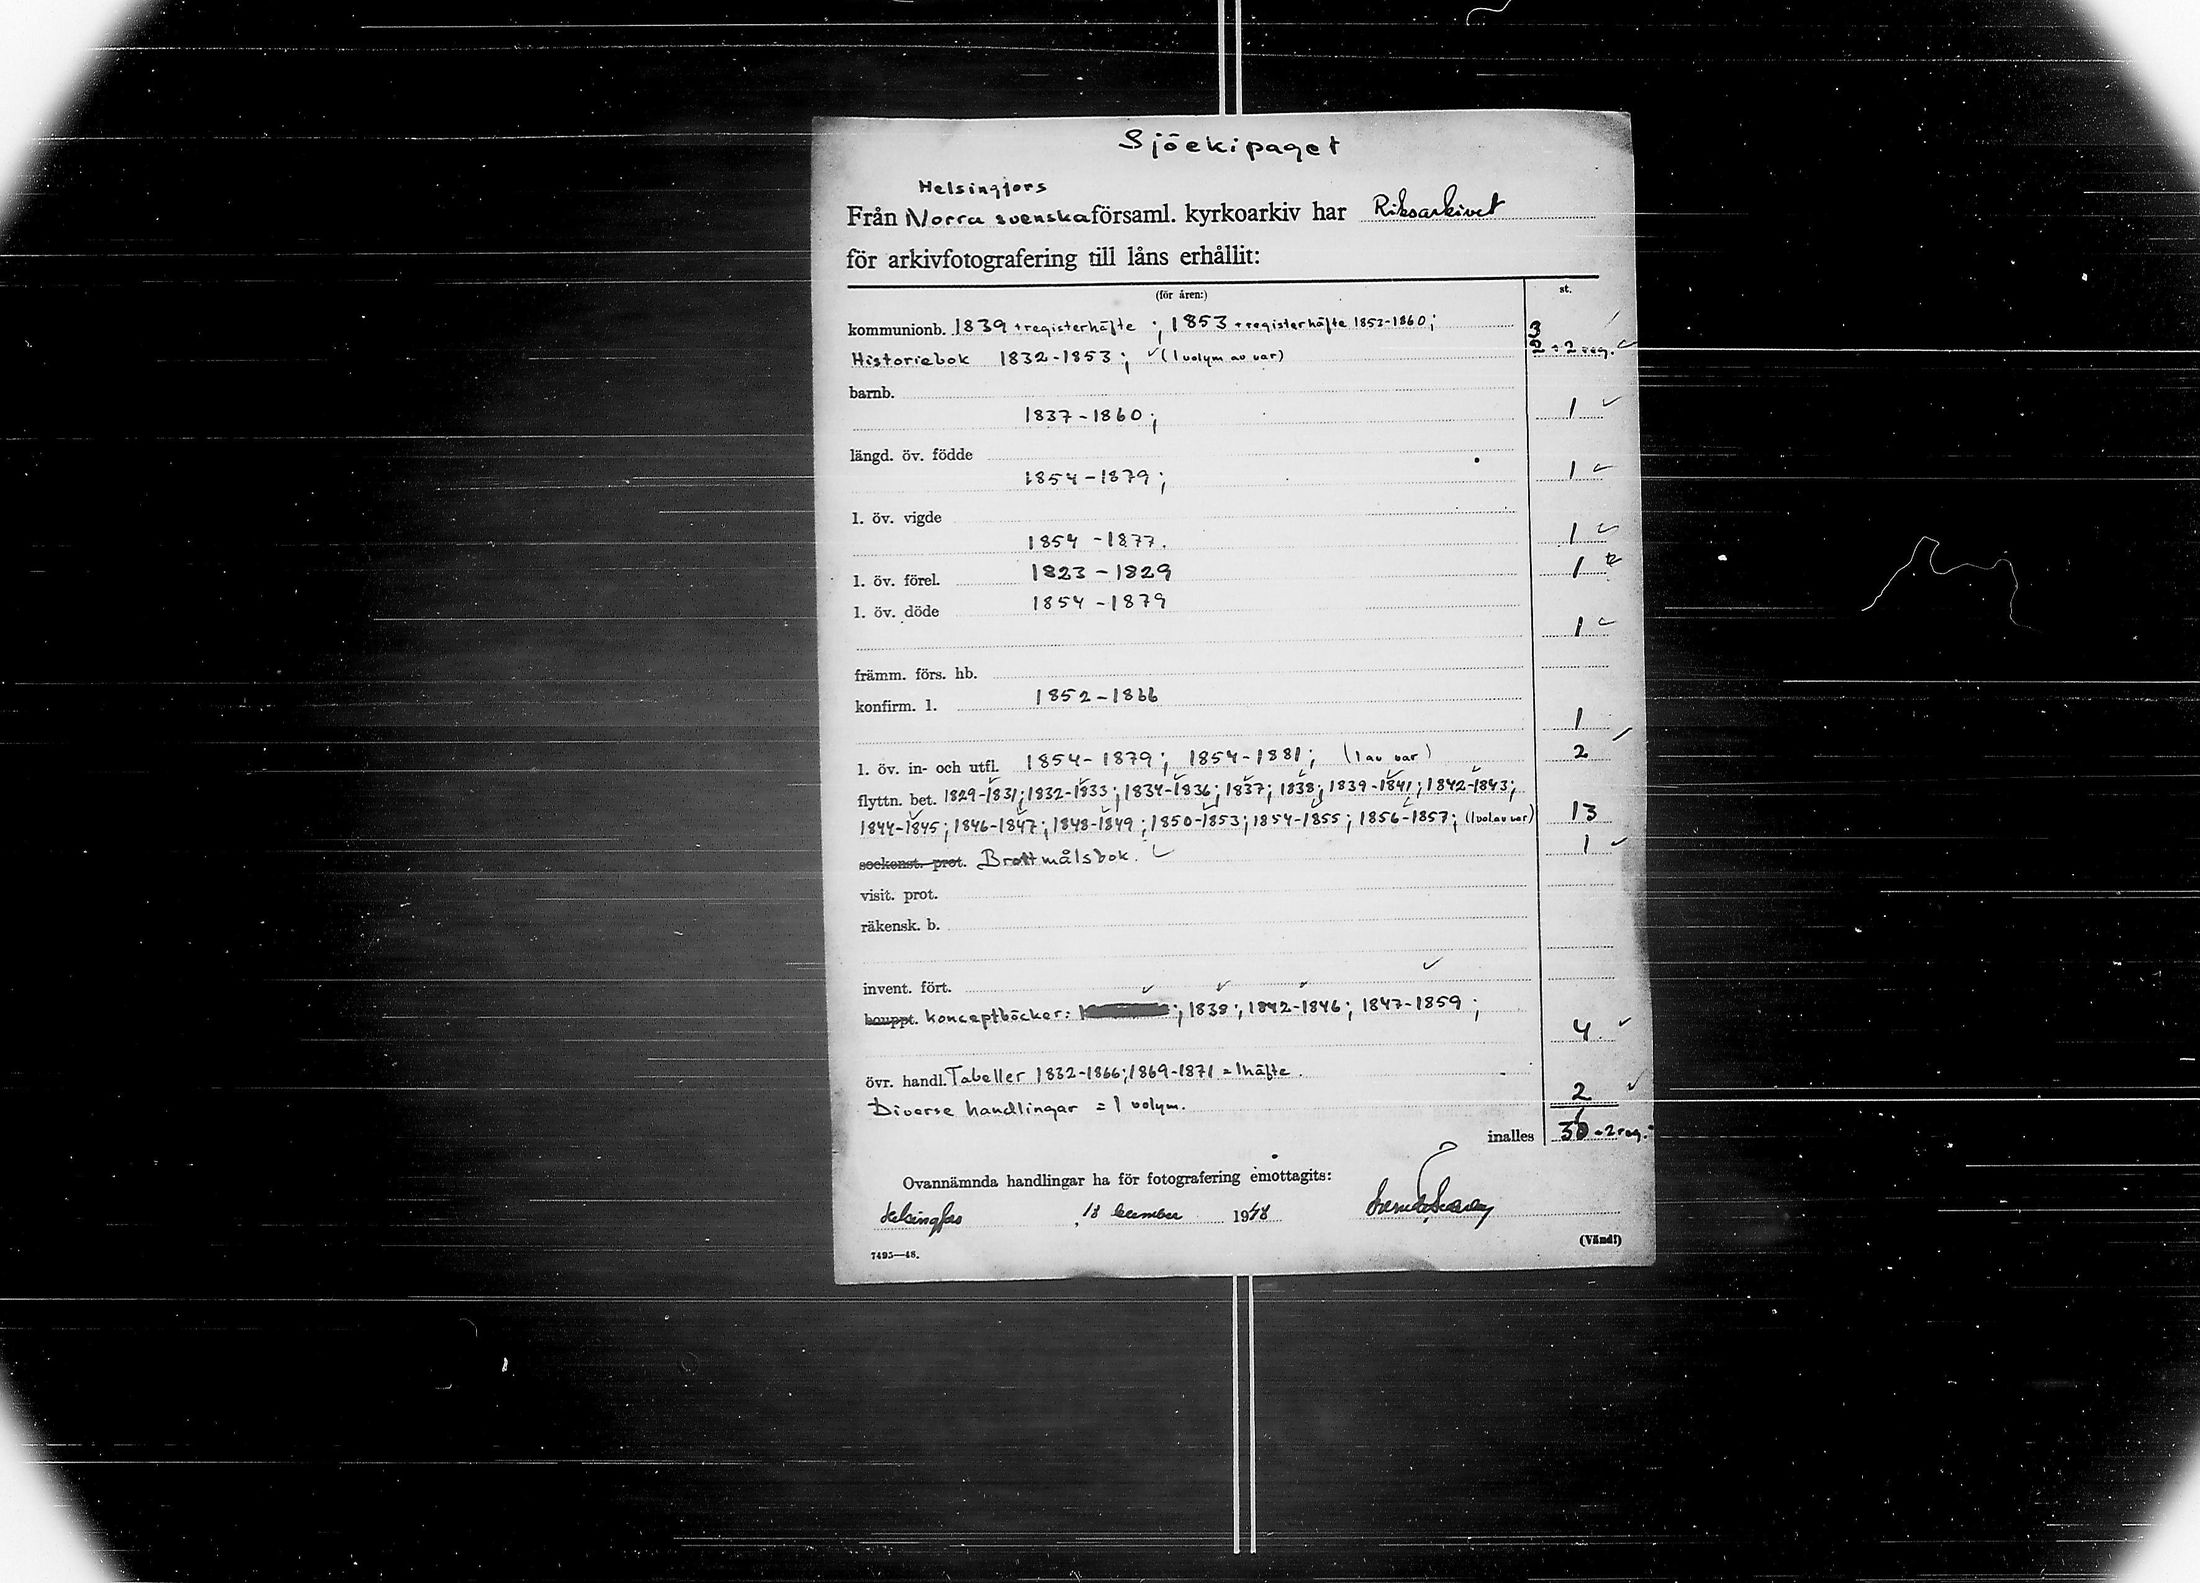 Sjöekipaget
Helsingfors
Från Norra svenska församl. kyrkoarkiv har Riksarkivet
för arkivfotografering till låns erhållit:
(för åren:) st.
kommunionb. 1839 + registerhäfte ; 1853 + registerhäfte 1853-1860; 3
Historiebok 1832-1853; (1 volym av var) 2 + 2 reg.
barnb.
1837-1860; 1
längd. öv. födde
1854-1879; 1
l. öv. vigde
1854-1877. 1
l. öv. förel. 1823-1829 1
l. öv. döde 1854-1879
1
främm. förs. hb.
konfirm. l. 1852-1866
1
l. öv. in- och utfl. 1854-1879; 1854-1881; (1 av var) 2
flyttn. bet. 1829-1831; 1832-1833; 1834-1836; 1837; 1838; 1839-1841; 1842-1843;
1844-1845; 1846-1847; 1848-1849; 1850-1853; 1854-1855; 1856-1857; (1 vol. av var) 13
sockenst. prot. Brottmålsbok. 1
visit. prot.
räkensk. b.
invent. fört.
bouppt. konceptböcker: ; 1838; 1842-1846; 1847-1859; 4
övr. handl. Tabeller 1832-1866; 1869-1871 = 1 häfte.
Diverse handlingar = 1 volym. 2
inalles + 2 reg.
Ovannämnda handlingar ha för fotografering emottagits:
Helsingfors, 18 december 1948
7495—48.
(Vänd!)